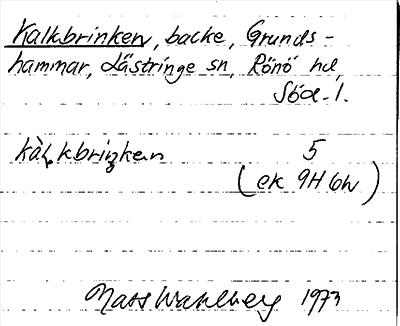 Kalkbrinken, backe, Grunds-
hammar, Lästringe sn, Rönö hd,
Söd. l.
kàl̨kbriŋkan 5
(ek 9H 6h)
Mats Wahlberg 1973